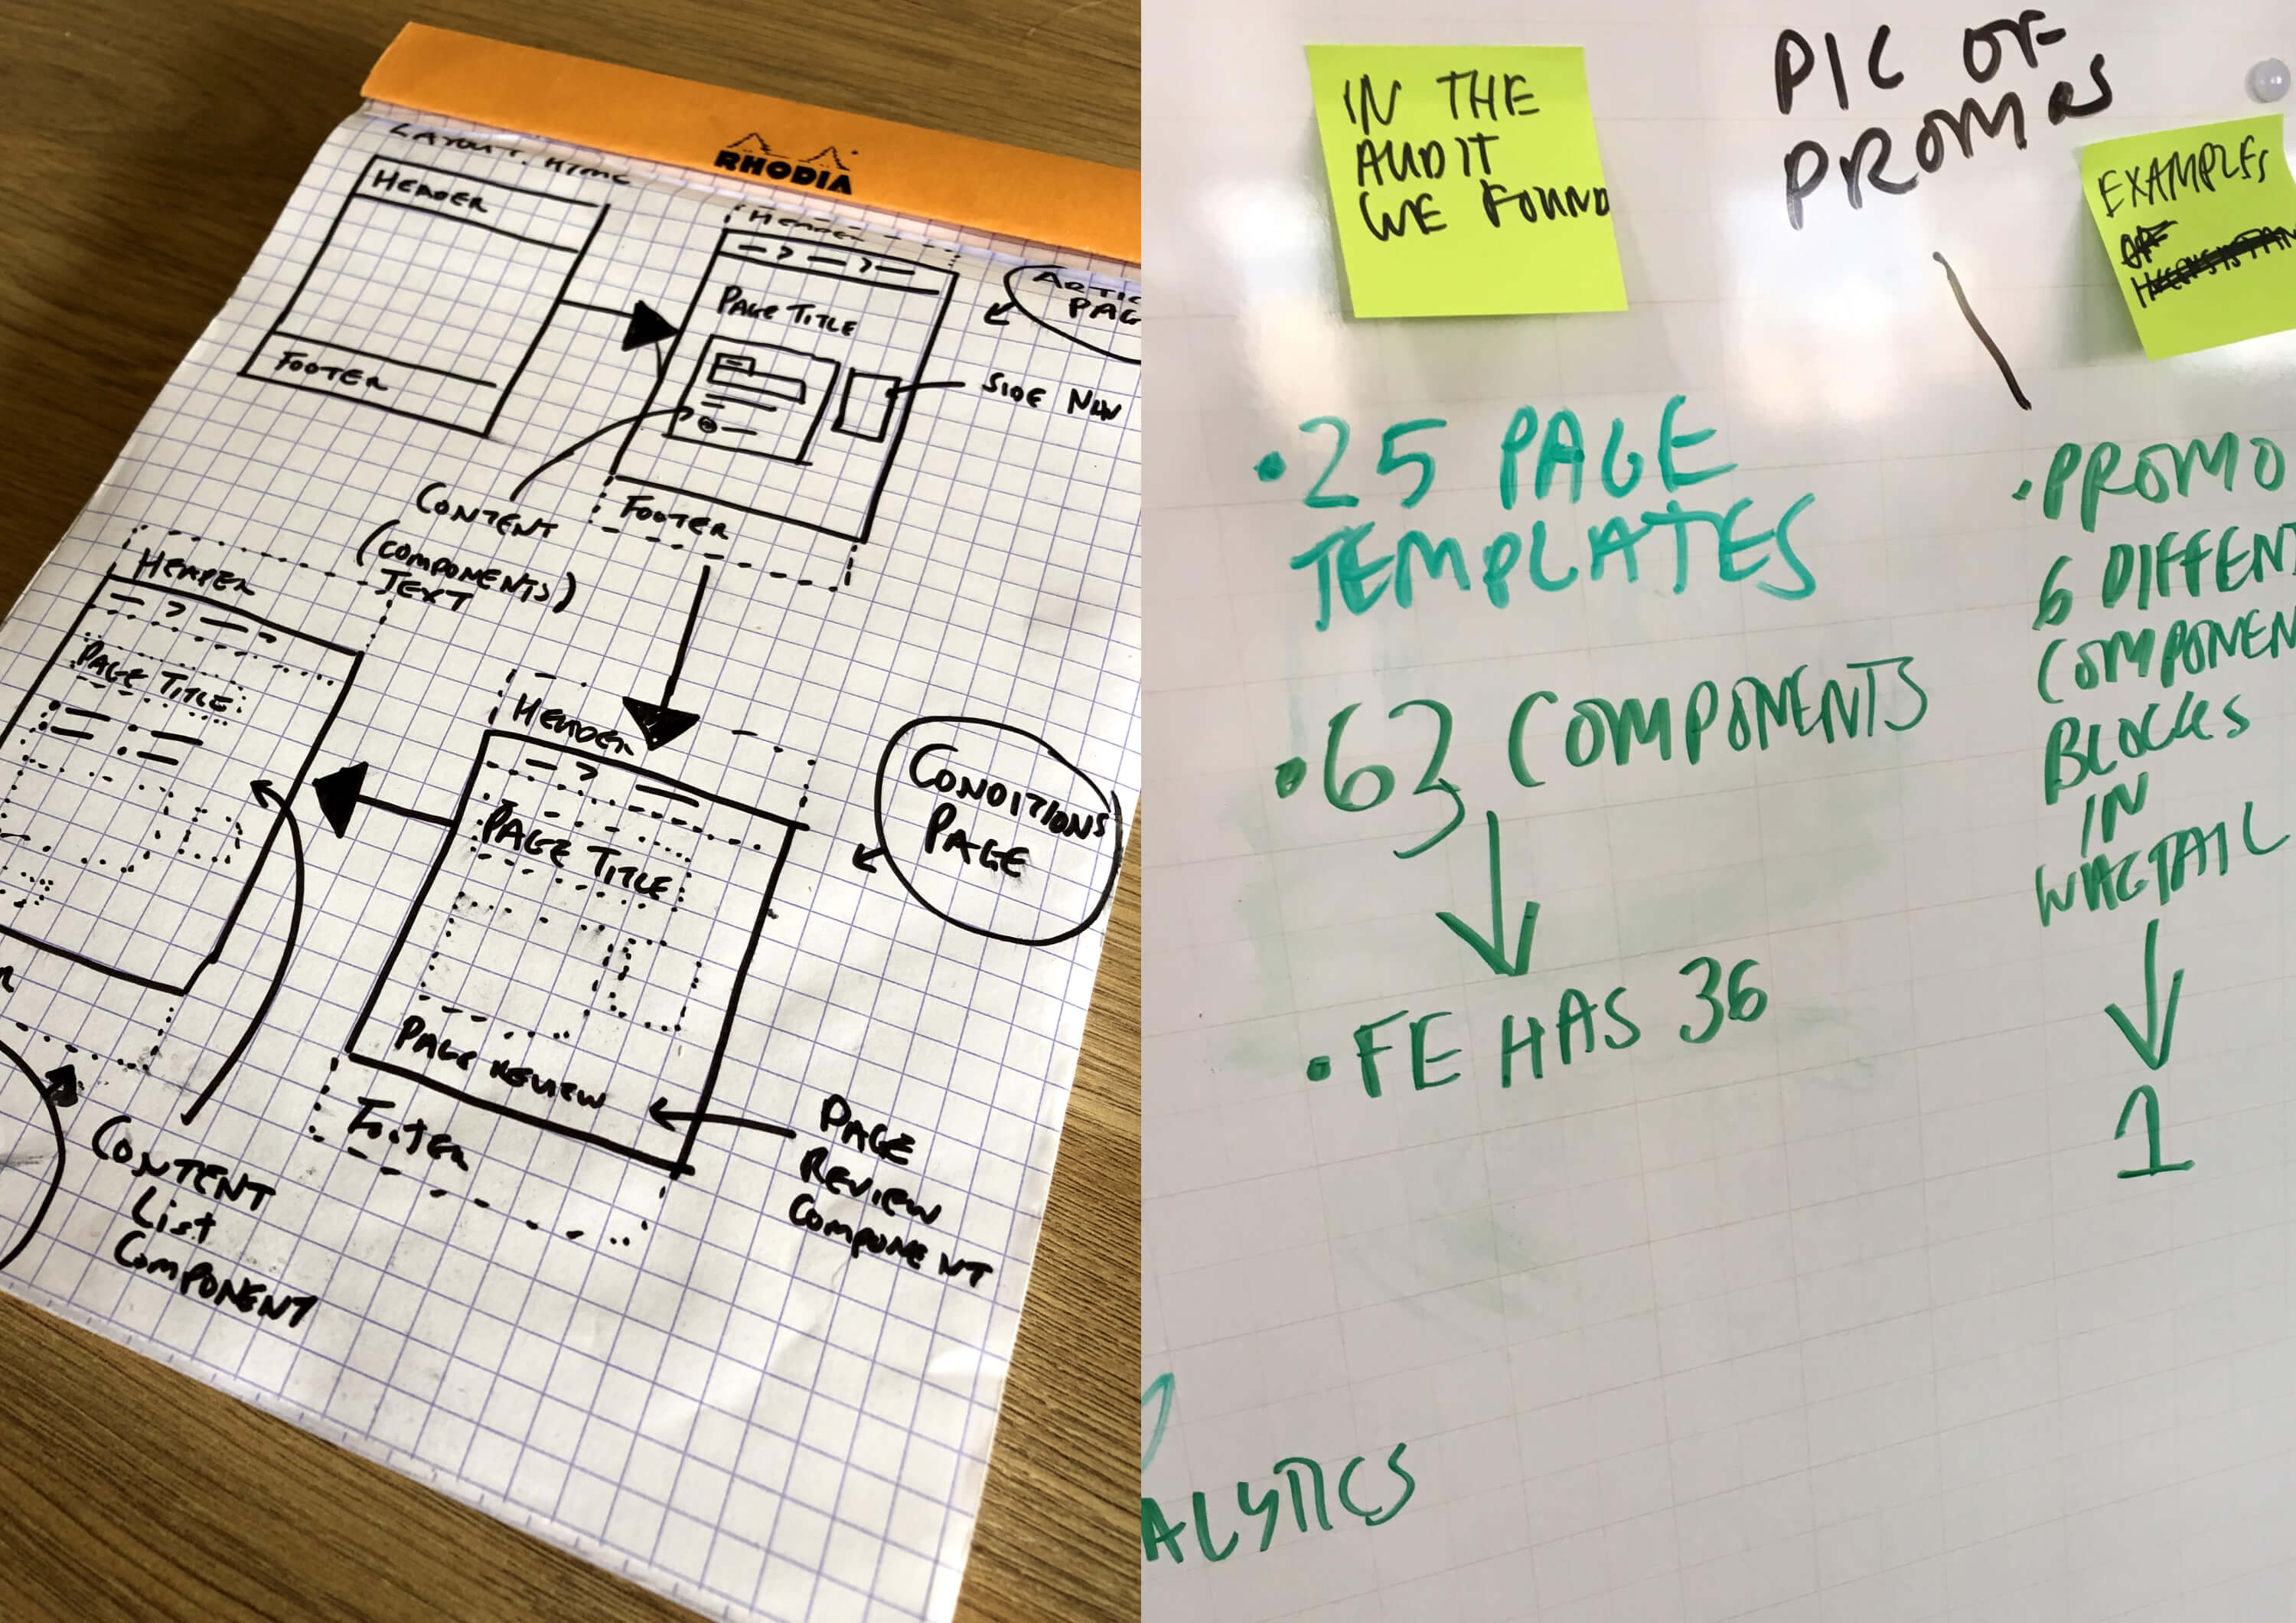 RHODIA
LAYOUT.HTML
HEADER
FOOTER
HEADER
PAGE TITLE
FOOTER
PAG
SIDE NAV
CONTENT
(COMPONENTS)
TEXT
HEADER
PAGE TITLE
HEADER
PAGE TITLE
PAGE REVIEW
FOOTER
CONDITIONS
PAGE
PAGE
REVIEW
COMPONENT
CONTENT
LIST
COMPONENT
IN THE
AUDIT
WE FOUND
PIC OF
PROMOS
EXAMPLES
OF
• 25 PAGE
TEMPLATES
• 63 COMPONENTS
• FE HAS 36
• PROMO
6 DIFFEN
COMPONEN
BLOCKS
IN
WAGTAIL
1
ALYTICS